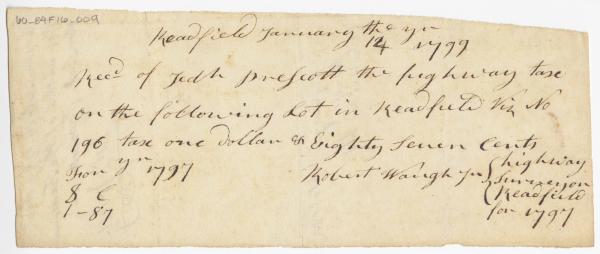 60-E4F16-009
Readfield January the yr
14 1799
Recd of Jedh Prescott the highway tax
on the following Lot in Readfield Viz No
196 tax one dollar & Eighty Seven Cents
For yr 1797 Robert Waugh Jn highway
Surveyor
$ C Readfield
1-87 for 1797